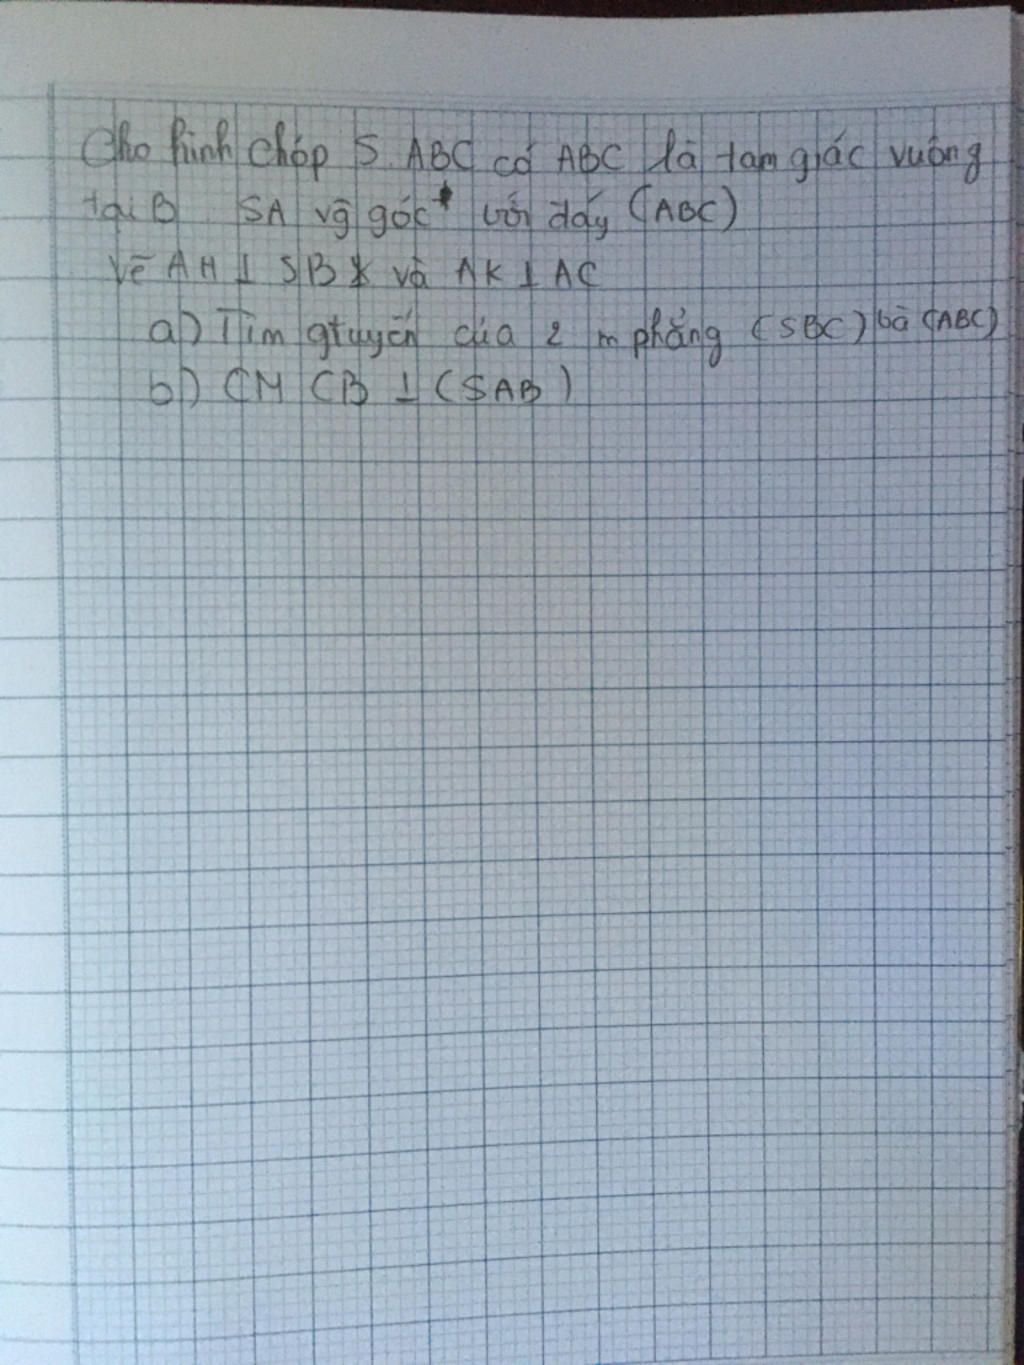 Cho hình chóp S.ABC có ABC là tam giác vuông
tại B SA vg góc với đáy (ABC)
Vẽ AH ⊥ SB và AK ⊥ AC
a) Tìm gtuyến của 2 m phẳng (SBC) bà (ABC)
b) CM CB ⊥ (SAB)